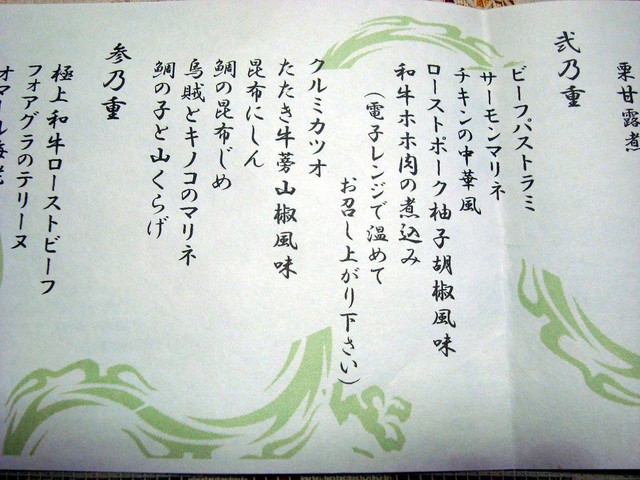 栗甘露煮
弐乃重
ビーフパストラミ
サーモンマリネ
チキンの中華風
ローストポーク柚子胡椒風味
和牛ホホ肉の煮込み
(電子レンジで温めて
お召し上がり下さい)
クルミカツオ
たたき牛蒡山椒風味
昆布にしん
鯛の昆布じめ
烏賊とキノコのマリネ
鯛の子と山くらげ
参乃重
極上和牛ローストビーフ
フォアグラのテリーヌ
オマール海老